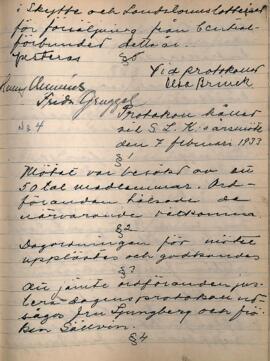 i Skytte och Landstormslotteriet
för försäljning från Central-
förbundet detta år.
Justeras §5
Vid protokollet
Elsa Brunck
No 4
Protokoll hållet
vid S.L.K:s årsmöte
den 7 februari 1933
§1
Mötet var besökt av ett
50 tal medlemmar. Ord-
föranden hälsade de
närvarande välkomna
§2
Dagordningen för mötet
upplästes och godkändes
§3
Att jämte ordföranden jus-
tera dagens protokoll ut-
sågos Jon Ljungberg och frö-
ken Sällvin.
§4